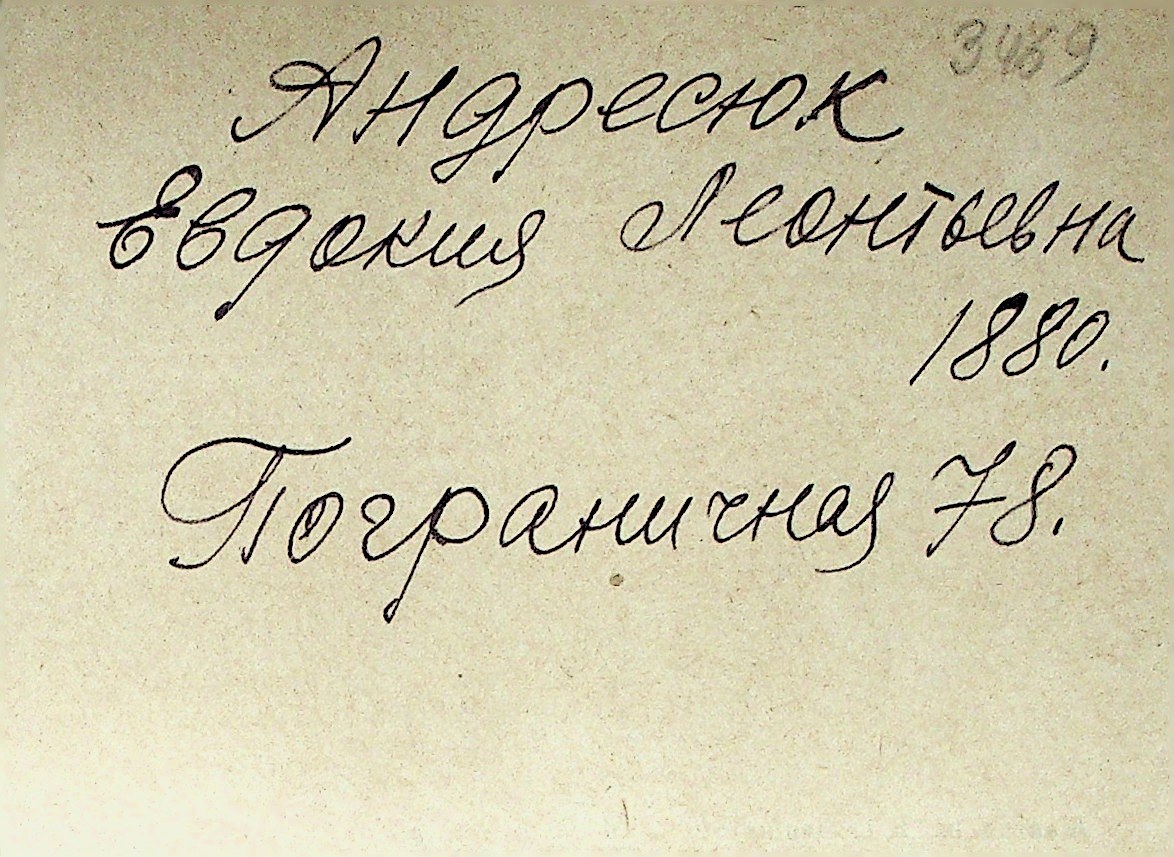 Андресюк
Евдокия Леонтьевна
1880.
Пограничная 78.